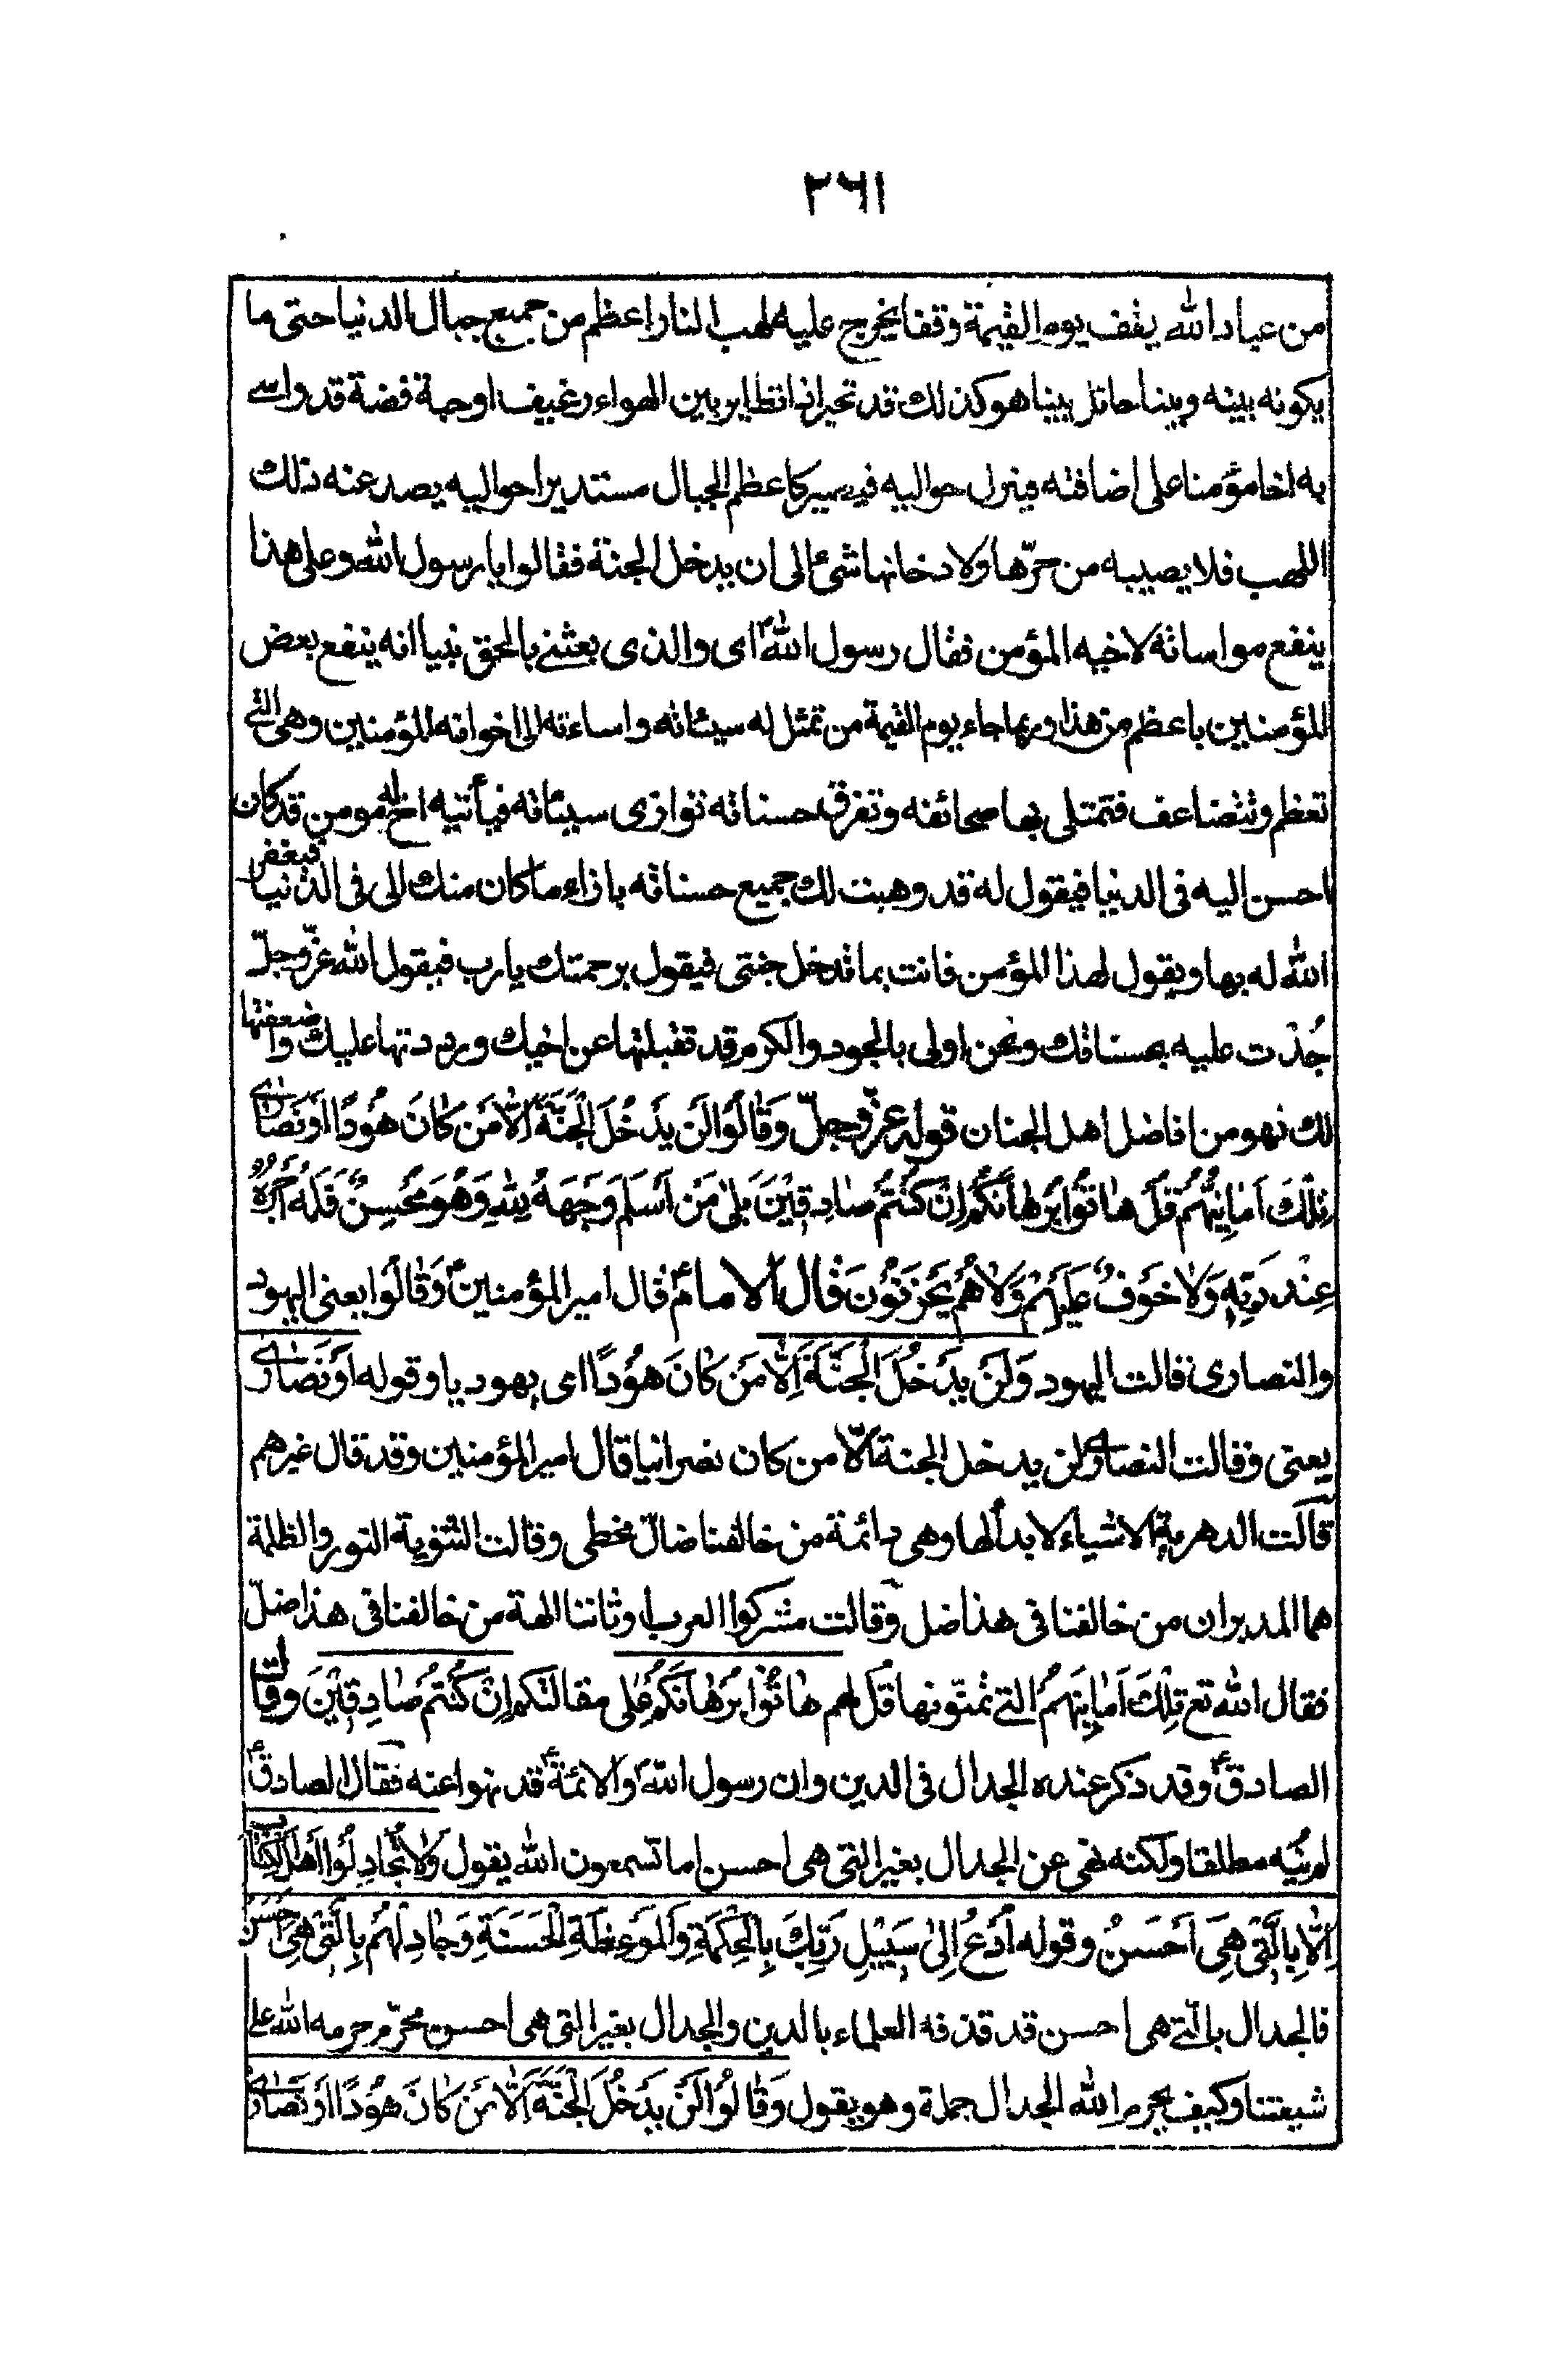 ٢٦١
من عباد الله يقف يوم القيمة وقفا يخرج عليه لهب النار اعظم من جميع جبال الدنيا حتى ما
يكونه بينه وبينا حائل بينا هو كذلك قد تحير اذا تطاير بين الهواء رغيف اوحبة فضة قد واسے
به اخا مؤمنا على اضافته فينزل حواليه فيصير كاعظم الجبال مستديرا حواليه يصد عنه ذلك
اللهب فلا يصيبه من حرّها ولا دخانها شئ الى ان يدخل الجنة فقالوا يا رسول الله وعلى هذا
ينفع مواساته لاخيه المؤمن فقال رسول الله ص اى والذى بعثنے بالحق نبيا انه ينفع بعض
المؤمنين باعظم من هذا وربما جاء يوم القيمة من تمثل له سيئاته واساءته الى اخوانه المؤمنين وهى التے
تعظم وتتضاعف فتمتلى بها صحائفه وتفرق حسناته توازى سيئاته فيأتيه اخ له مومن قد كان
احسن اليه فى الدنيا فيقول له قد وهبت لك جميع حسناته بازاء ما كان منك الى فى الدنيا فيغفر
الله له بها ويقول لهذا المؤمن فانت بما تدخل جنتى فيقول برحمتك يا رب فيقول الله عزّ وجلّ
جُدْت عليه بحسناتك ونحن اولى بالجود والكرم قد تقبلتها عن اخيك ورددتها عليك واضعفتها
لك فهو من افاضل اهل الجنان قوله عزّ وجلّ وَقَالُوا لَنْ يَدْخُلَ الْجَنَّةَ اِلَّا مَنْ كَانَ هُودًا اَوْ نَصَارٰى
تِلْكَ اَمَانِيُّهُمْ قُلْ هَاتُوا بُرْهَانَكُمْ اِنْ كُنْتُمْ صَادِقِيْنَ بَلٰى مَنْ اَسْلَمَ وَجْهَهُ لِلّٰهِ وَهُوَ مُحْسِنٌ فَلَهُ اَجْرُهُ
عِنْدَ رَبِّهِ وَلَا خَوْفٌ عَلَيْهِمْ وَلَا هُمْ يَحْزَنُوْنَ قال الامام ع قال امير المؤمنين ع وَقَالُوا يعنى اليهود
والنصارى فقالت اليهود وَلَنْ يَدْخُلَ الْجَنَّةَ اِلَّا مَنْ كَانَ هُوْدًا اى يهوديا وقوله اَوْ نَصَارٰى
يعنى وقالت النصارى لن يدخل الجنة الّا من كان نصرانيا قال امير المؤمنين وقد قال غيرهم
قالت الدهرية الاشياء لا بدأ لها وهى دائمة من خالفنا ضالّ مخطى وقالت الثنوية النور والظلمة
هما المدبران من خالفنا فى هذا ضل وقالت مشركوا العرب اوثاننا الهة من خالفنا فى هذا ضلّ
فقال الله تع تِلْكَ اَمَانِيُّهُمْ التے تمنّونها قُلْ لهم هَاتُوْا بُرْهَانَكُمْ على مقالتكم اِنْ كُنْتُمْ صَادِقِيْنَ وقالت
الصادق ع وقد ذكر عنده الجدال فى الدين وان رسول الله ص والائمة ع قد نهوا عنه فقال الصادق ع
لم ينه مطلقا ولكنه نهى عن الجدال بغير التى هى احسن اما تسمعون الله يقول وَلَا تُجَادِلُوا اَهْلَ الْكِتَابِ
اِلَّا بِالَّتِى هِىَ اَحْسَنُ وقوله اُدْعُ اِلٰى سَبِيْلِ رَبِّكَ بِالْحِكْمَةِ وَالْمَوْعِظَةِ الْحَسَنَةِ وَجَادِلْهُمْ بِالَّتِى هِىَ اَحْسَنُ
فالجدال بالّتے هى احسن قد قذفه العلماء بالدين والجدال بغير التى هى احسن محرّم حرمه الله على
شيعتنا وكيف يحرم الله الجدال جملة وهو يقول وَقَالُوْا لَنْ يَدْخُلَ الْجَنَّةَ اِلَّا مَنْ كَانَ هُوْدًا اَوْ نَصَارٰى